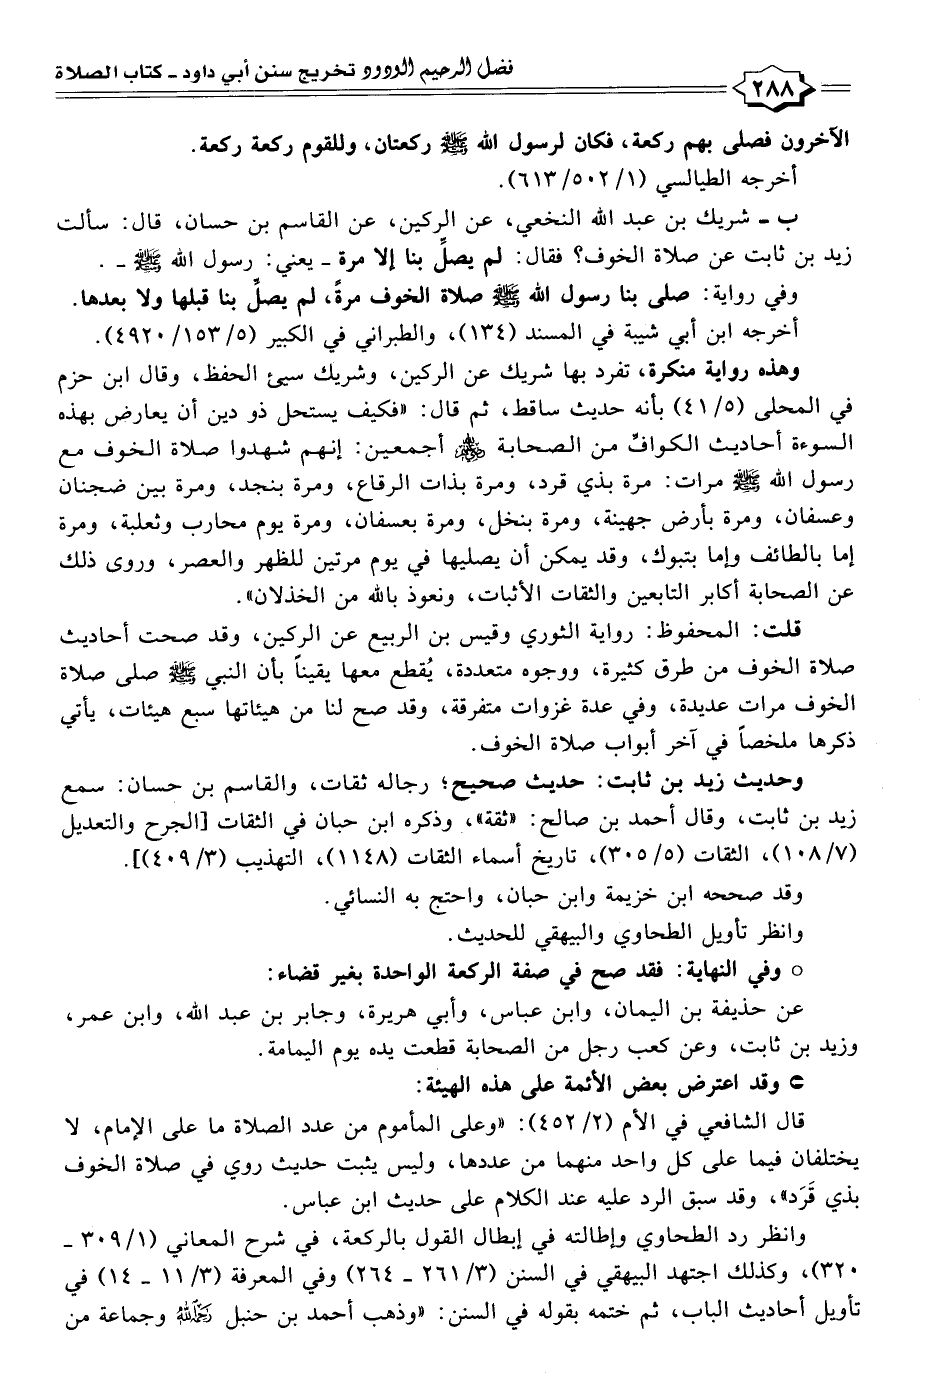 فضل الرحيم الودود تخريج سنن أبي داود ـ كتاب الصلاة
٢٨٨
الآخرون فصلى بهم ركعة، فكان لرسول الله ﷺ ركعتان، وللقوم ركعة ركعة.
أخرجه الطيالسي (١/ ٥٠٢/ ٦١٣).
ب ـ شريك بن عبد الله النخعي، عن الركين، عن القاسم بن حسان، قال: سألت
زيد بن ثابت عن صلاة الخوف؟ فقال: لم يصلِّ بنا إلا مرة ـ يعني: رسول الله ﷺ ـ .
وفي رواية: صلى بنا رسول الله ﷺ صلاة الخوف مرةً، لم يصلِّ بنا قبلها ولا بعدها.
أخرجه ابن أبي شيبة في المسند (١٣٤)، والطبراني في الكبير (٥/ ١٥٣/ ٤٩٢٠).
وهذه رواية منكرة، تفرد بها شريك عن الركين، وشريك سيئ الحفظ، وقال ابن حزم
في المحلى (٥/ ٤١) بأنه حديث ساقط، ثم قال: «فكيف يستحل ذو دين أن يعارض بهذه
السوءة أحاديث الكوافِّ من الصحابة ﵃ أجمعين: إنهم شهدوا صلاة الخوف مع
رسول الله ﷺ مرات: مرة بذي قرد، ومرة بذات الرقاع، ومرة بنجد، ومرة بين ضجنان
وعسفان، ومرة بأرض جهينة، ومرة بنخل، ومرة بعسفان، ومرة يوم محارب وثعلبة، ومرة
إما بالطائف وإما بتبوك، وقد يمكن أن يصليها في يوم مرتين للظهر والعصر، وروى ذلك
عن الصحابة أكابر التابعين والثقات الأثبات، ونعوذ بالله من الخذلان».
قلت: المحفوظ: رواية الثوري وقيس بن الربيع عن الركين، وقد صحت أحاديث
صلاة الخوف من طرق كثيرة، ووجوه متعددة، يُقطع معها يقيناً بأن النبي ﷺ صلى صلاة
الخوف مرات عديدة، وفي عدة غزوات متفرقة، وقد صح لنا من هيئاتها سبع هيئات، يأتي
ذكرها ملخصاً في آخر أبواب صلاة الخوف.
وحديث زيد بن ثابت: حديث صحيح؛ رجاله ثقات، والقاسم بن حسان: سمع
زيد بن ثابت، وقال أحمد بن صالح: «ثقة»، وذكره ابن حبان في الثقات [الجرح والتعديل
(٧/ ١٠٨)، الثقات (٥/ ٣٠٥)، تاريخ أسماء الثقات (١١٤٨)، التهذيب (٣/ ٤٠٩)].
وقد صححه ابن خزيمة وابن حبان، واحتج به النسائي.
وانظر تأويل الطحاوي والبيهقي للحديث.
○ وفي النهاية: فقد صح في صفة الركعة الواحدة بغير قضاء:
عن حذيفة بن اليمان، وابن عباس، وأبي هريرة، وجابر بن عبد الله، وابن عمر،
وزيد بن ثابت، وعن كعب رجل من الصحابة قطعت يده يوم اليمامة.
وقد اعترض بعض الأئمة على هذه الهيئة:
قال الشافعي في الأم (٢/ ٤٥٢): «وعلى المأموم من عدد الصلاة ما على الإمام، لا
يختلفان فيما على كل واحد منهما من عددها، وليس يثبت حديث روي في صلاة الخوف
بذي قَرَد»، وقد سبق الرد عليه عند الكلام على حديث ابن عباس.
وانظر رد الطحاوي وإطالته في إبطال القول بالركعة، في شرح المعاني (١/ ٣٠٩ ـ
٣٢٠)، وكذلك اجتهد البيهقي في السنن (٣/ ٢٦١ ـ ٢٦٤) وفي المعرفة (٣/ ١١ ـ ١٤) في
تأويل أحاديث الباب، ثم ختمه بقوله في السنن: «وذهب أحمد بن حنبل ﵀ وجماعة من